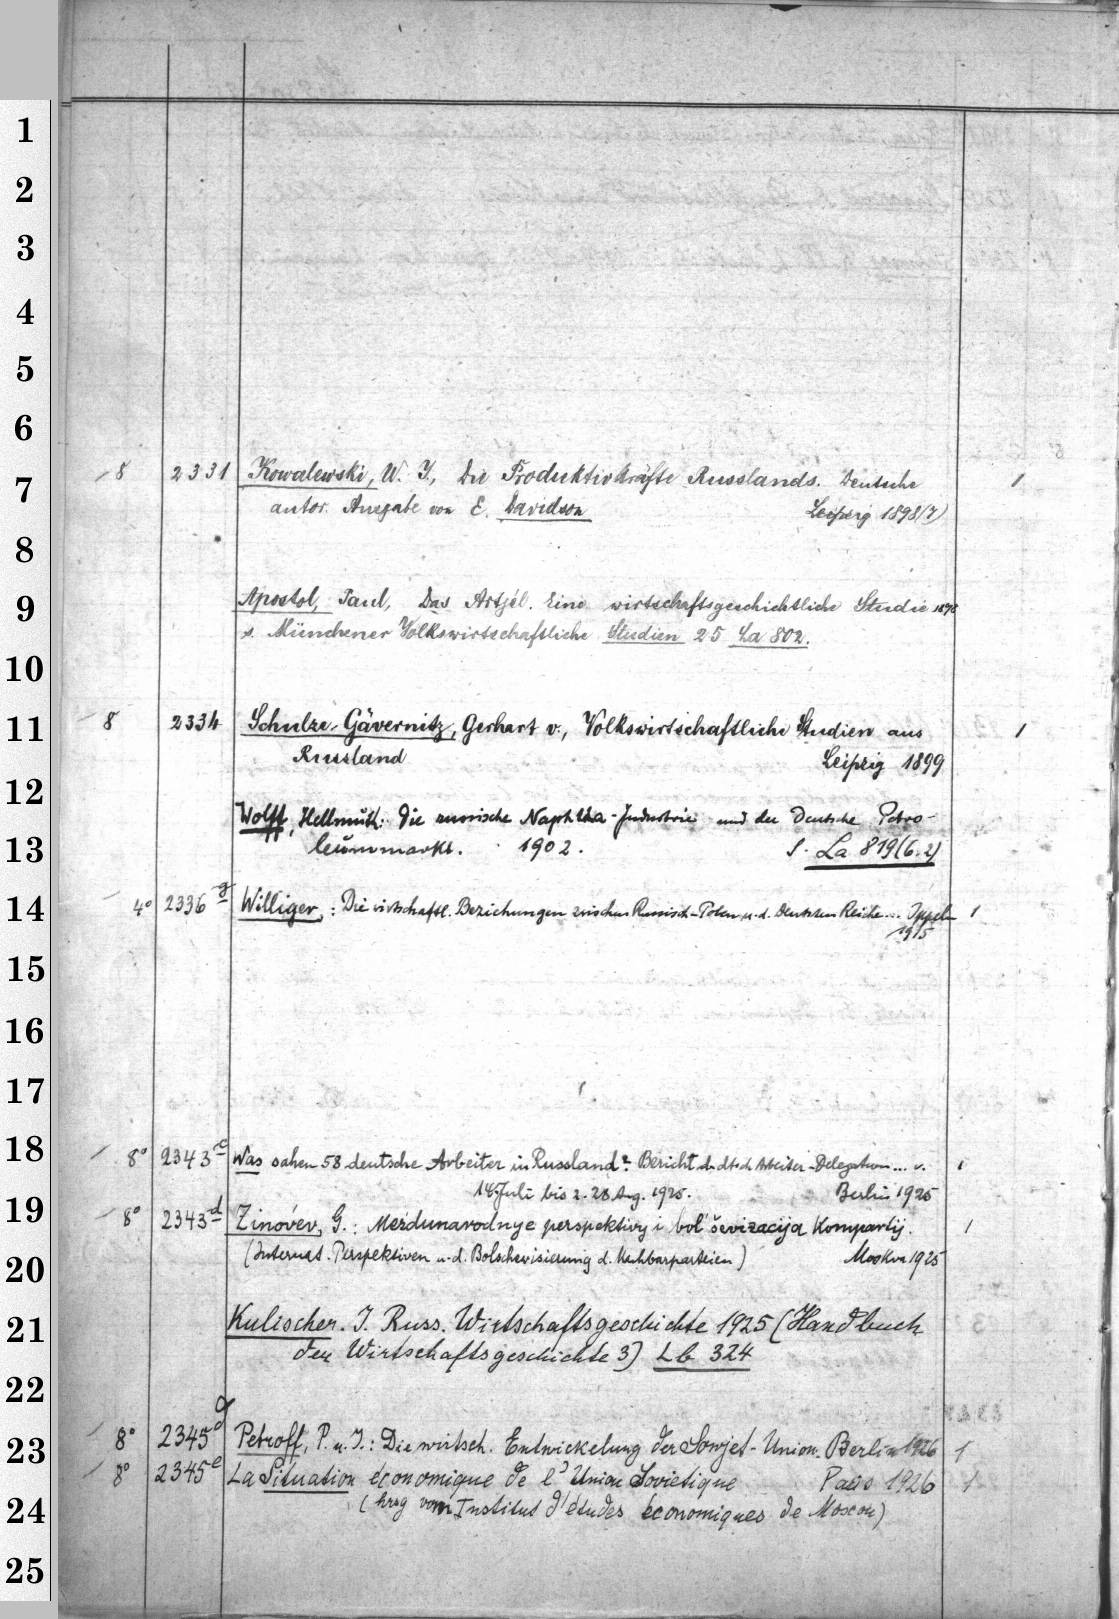 1
2
3
4
5
6
8 2331 Kowalewski, W. J., Die Produktivkräfte Russlands. Deutsche 1
7
autor. Ausgabe von E. Davidson Leipzig 1898(7)
8
Apostol, Paul, Das Artjél. Eine wirtschaftsgeschichtliche Studie 1898
9
s. Münchener Volkswirtschaftliche Studien 25 La 802.
10
8 2334 Schulze-Gävernitz, Gerhart v., Volkswirtschaftliche Studien aus 1
11
Russland Leipzig 1899
12
Wolff, Hellmuth: Die russische Naphtha-Industrie und der Deutsche Petro-
13
leummarkt. 1902. s. La 819(6.2)
14
4° 2336 g Williger, : Die wirtschaftl. Beziehungen zwischen Russisch-Polen u. d. Deutschen Reiche... Oppeln 1
1915
15
16
17
18
8° 2343 c Was sahen 58 deutsche Arbeiter in Russland? Bericht d. dtsch Arbeiter-Delegation... v. 1
14 Juli bis z. 28 Aug. 1925. Berlin 1925
19
8° 2343 d Zinov́ev, G.: Meždunarodnye perspektivy i bol'ševizacija Kompartij. 1
(Internat. Perspektiven u. d. Bolschewisierung d. Moskva 1925
20
Kulischer. J. Russ. Wirtschaftsgeschichte 1925 (Handbuch
21
der Wirtschaftsgeschichte 3) Lb 324
22
8° 2345 d Petroff, P. u. J.: Die wirtsch. Entwickelung der Sowjet-Union. Berlin 1926 1
23
8° 2345 e La Situation économique de l'Union Soviétique Paris 1926 1
24
(hrsg vom Institut d'études économiques de Moscou)
25